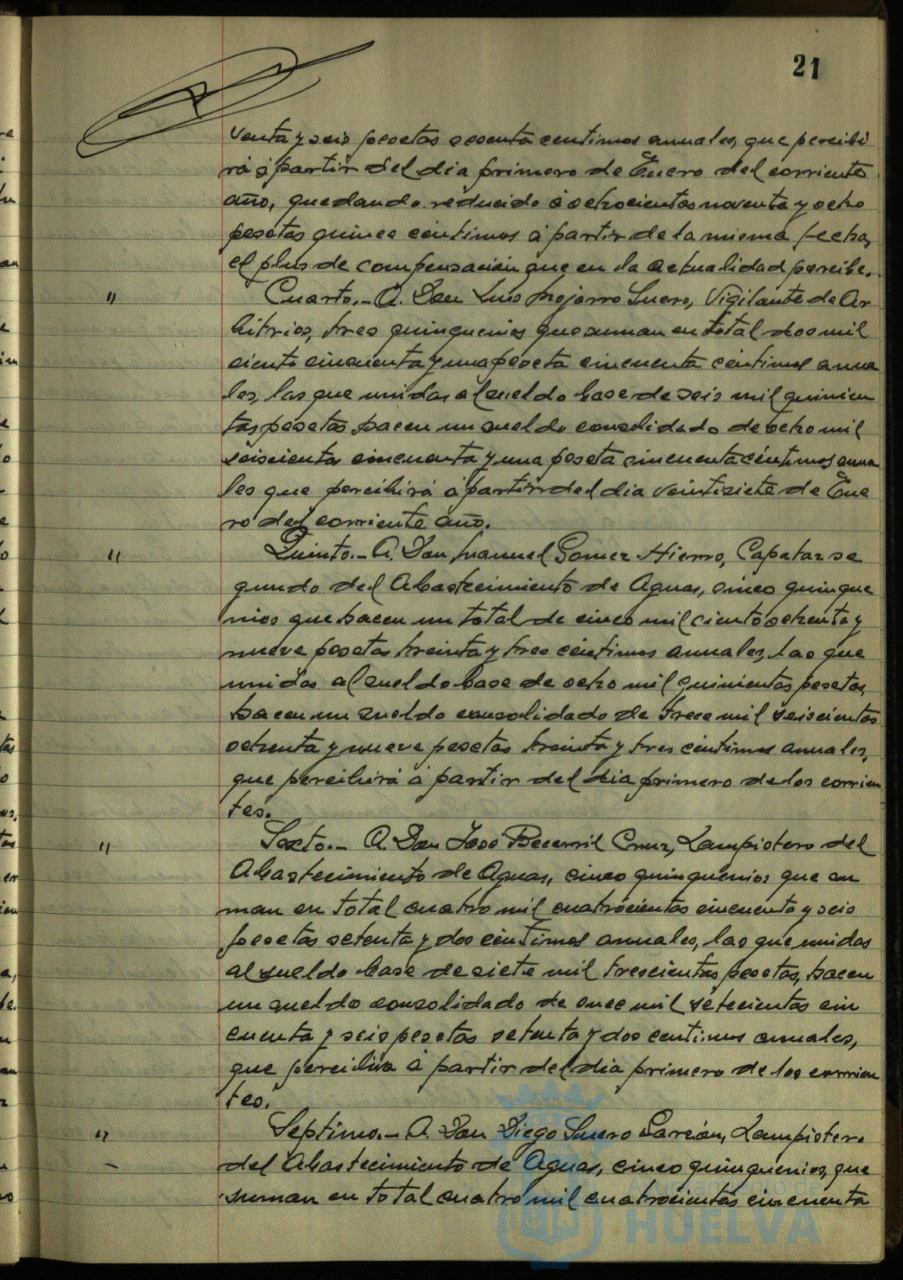 21
venta y seis pesetas sesenta centimos anuales, que percibi
rá á partir del dia primero de Enero del corriente
año, quedando reducido á ochocientas noventa y ocho
pesetas quince centimos á partir de la misma fecha,
el plus de compensación que en la actualidad percibe.
" Cuarto.- A Don Luis Mojarro Suero, Vigilante de Ar
bitrios, tres quinquenios que suman en total dos mil
ciento cincuenta y una peseta cincuenta centimos anua
les, las que unidas al sueldo base de seis mil quinien
tas pesetas hacen un sueldo consolidado de ocho mil
seiscientas cincuenta y una peseta cincuenta centimos anua
les que percibirá á partir del dia veintisiete de Ene
ro del corriente año.
" Quinto.- A Don Manuel Gomez Hierro, Capataz se
gundo del Abastecimiento de Aguas, cinco quinque
nios que hacen un total de cinco mil ciento ochenta y
nueve pesetas treinta y tres centimos anuales, las que
unidas al sueldo base de ocho mil quinientas pesetas,
hacen un sueldo consolidado de trece mil seiscientas
ochenta y nueve pesetas treinta y tres centimos anuales,
que percibirá á partir del dia primero de los corrien
tes.
" Sexto.- A Don José Becerril Cruz, Lampistero del
Abastecimiento de Aguas, cinco quinquenios que su
man en total cuatro mil cuatrocientas cincuenta y seis
pesetas setenta y dos centimos anuales, las que unidas
al sueldo base de siete mil trescientas pesetas, hacen
un sueldo consolidado de once mil setecientas cin
cuenta y seis pesetas setenta y dos centimos anuales,
que percibirá á partir del dia primero de los corrien
tes.
" Septimo.- A Don Diego Suero Garcia, Lampistero
del Abastecimiento de Aguas, cinco quinquenios, que
suman en total cuatro mil cuatrocientas cincuenta
Ayuntamiento de
HUELVA